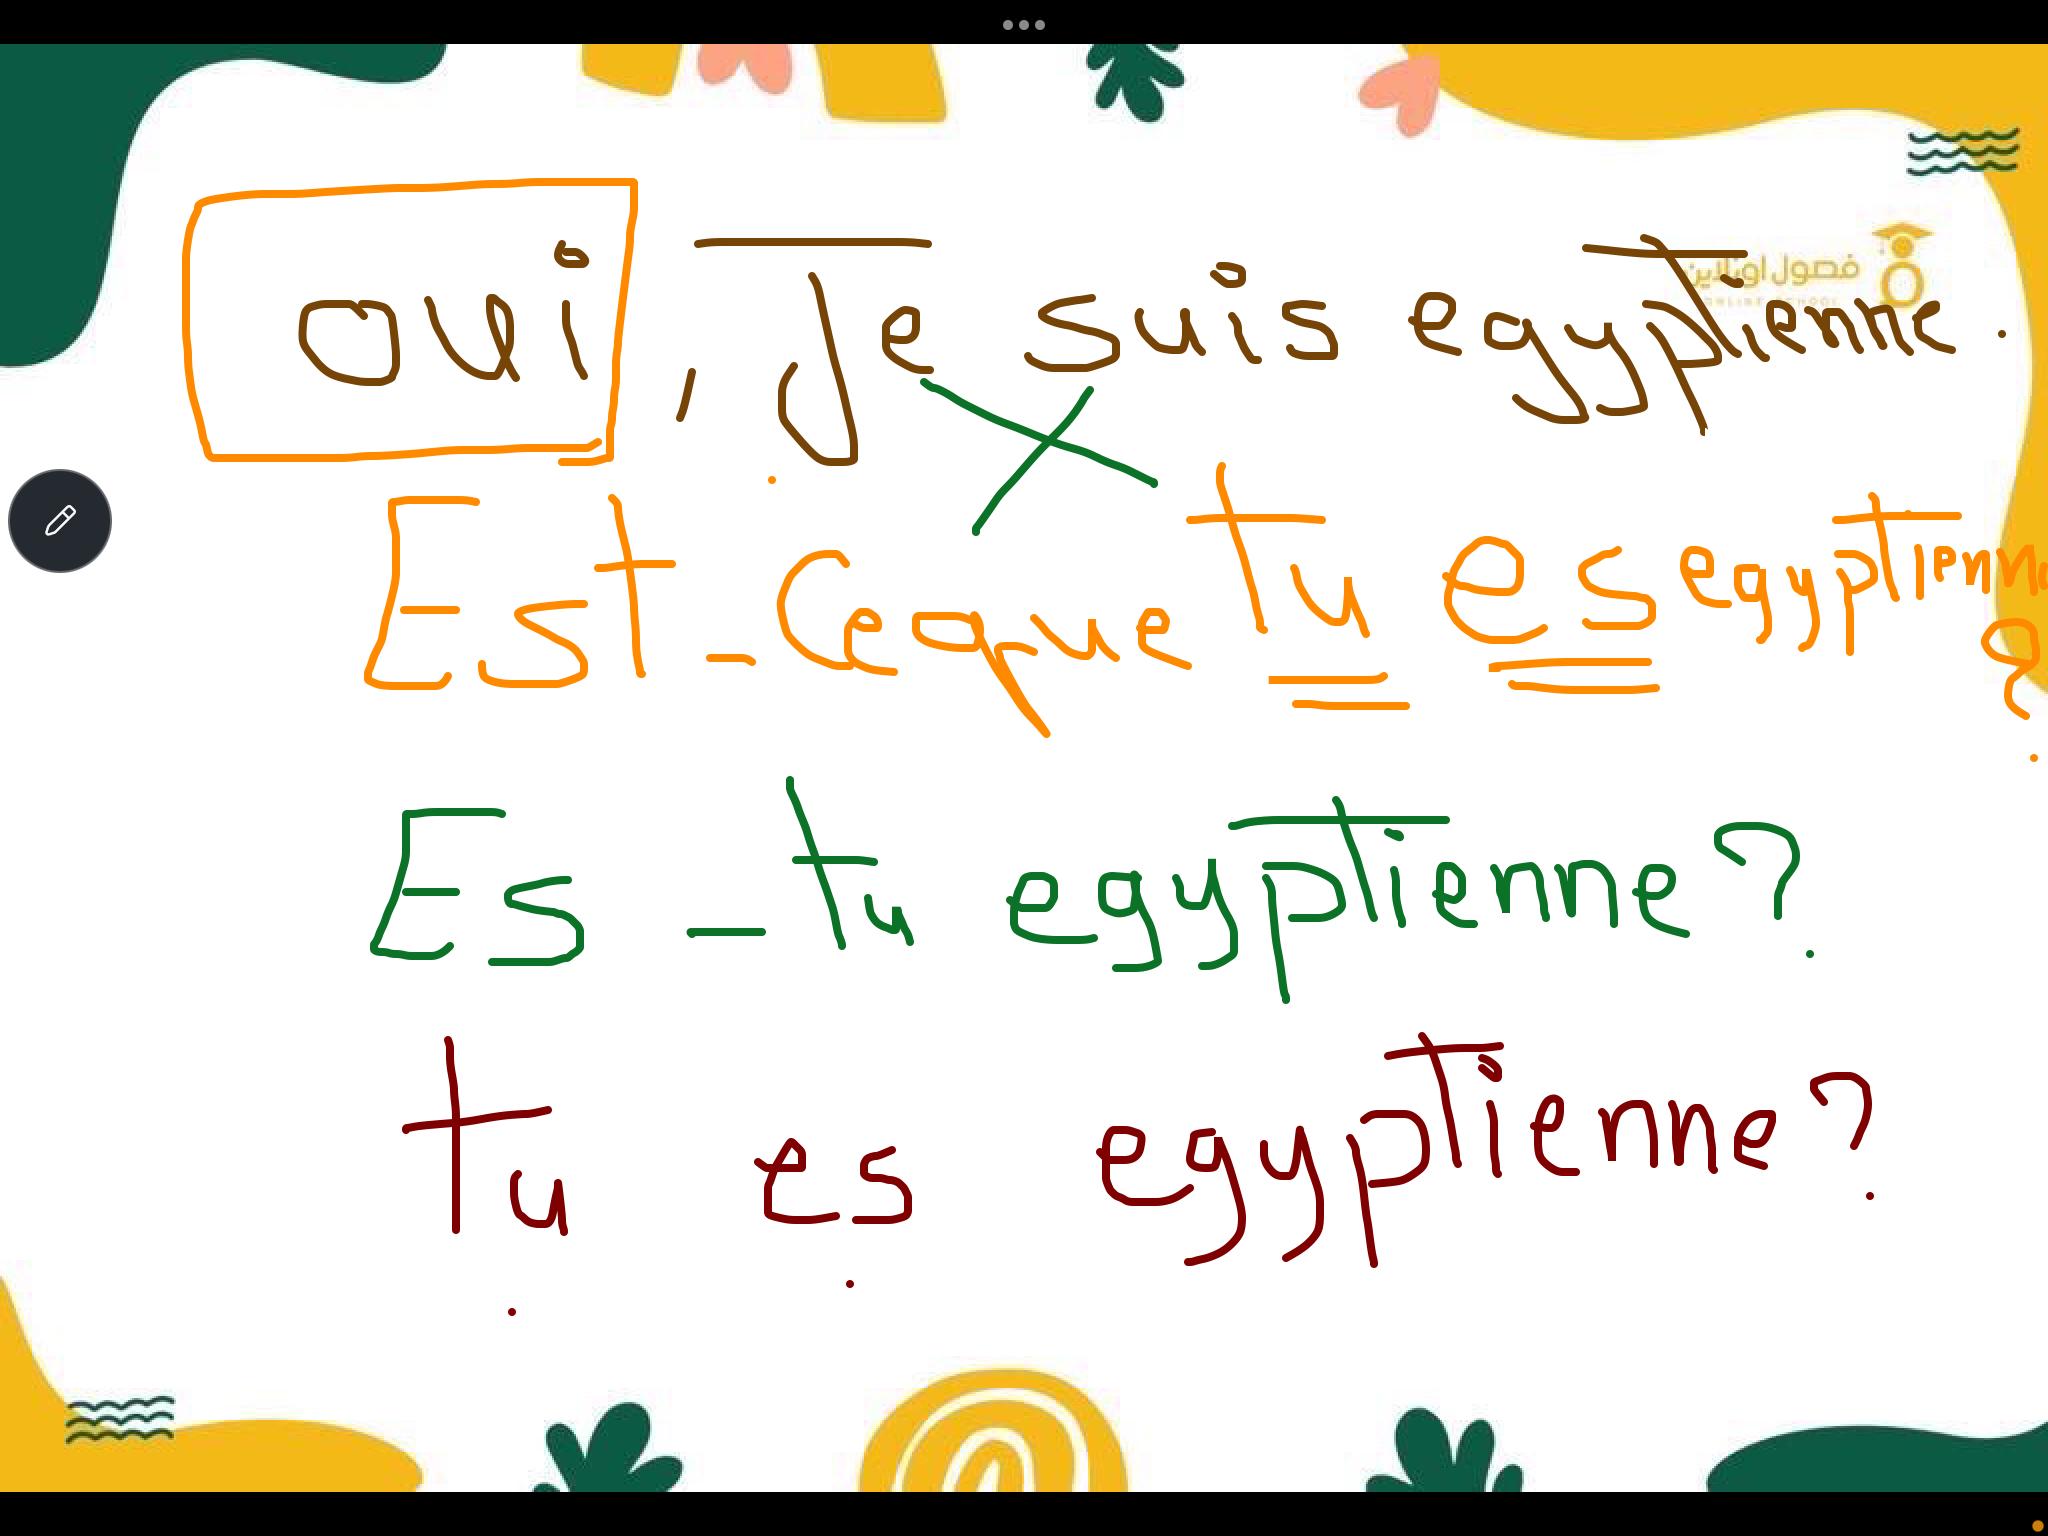 oui, Je suis egyptienne.
فصول اونلاين
ONLINE SCHOOL
Est-Ceque tu es egyptienne?
Es-tu egyptienne?
tu es egyptienne?